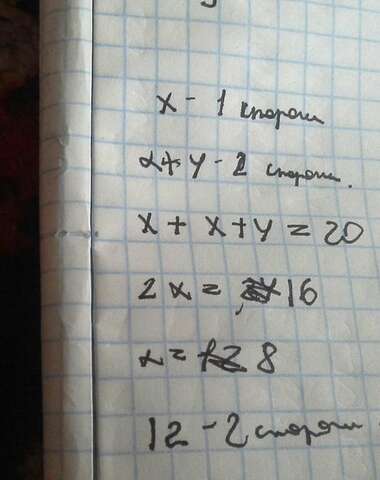 x - 1 сторона
x + y - 2 сторона.
x + x + y = 20
2x = 16
x = 8
12 - 2 сторона